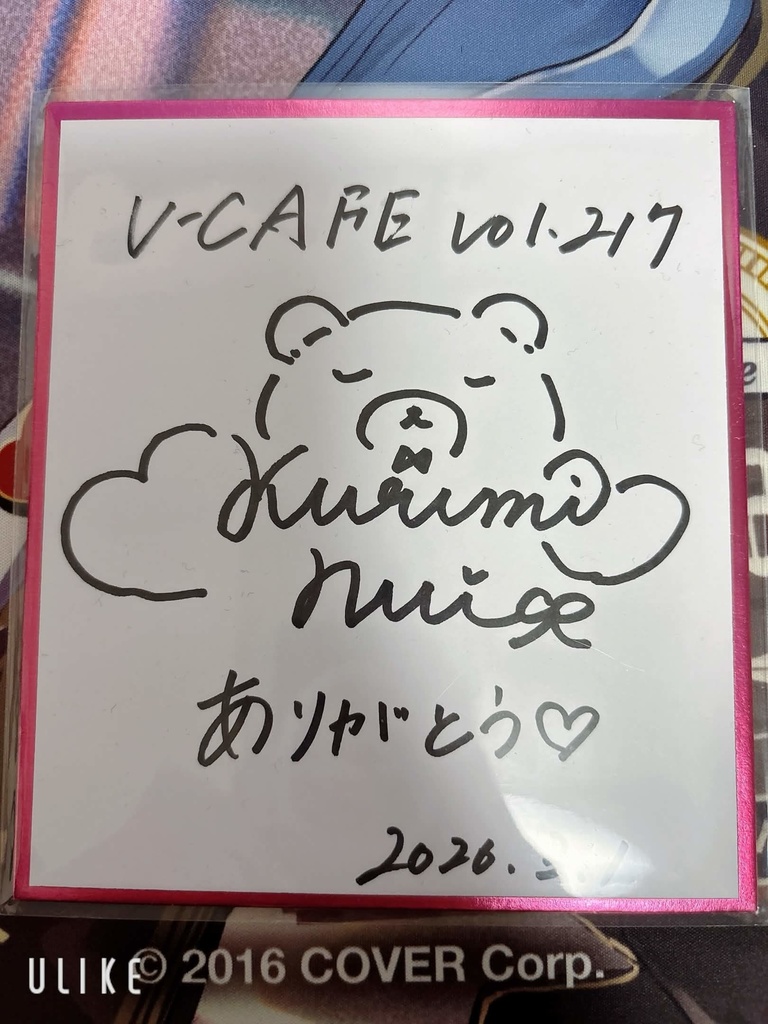 V-CAFE vol.217
Kurumi
nui
ありがとう♡
2026.
ULIKE
© 2016 COVER Corp.